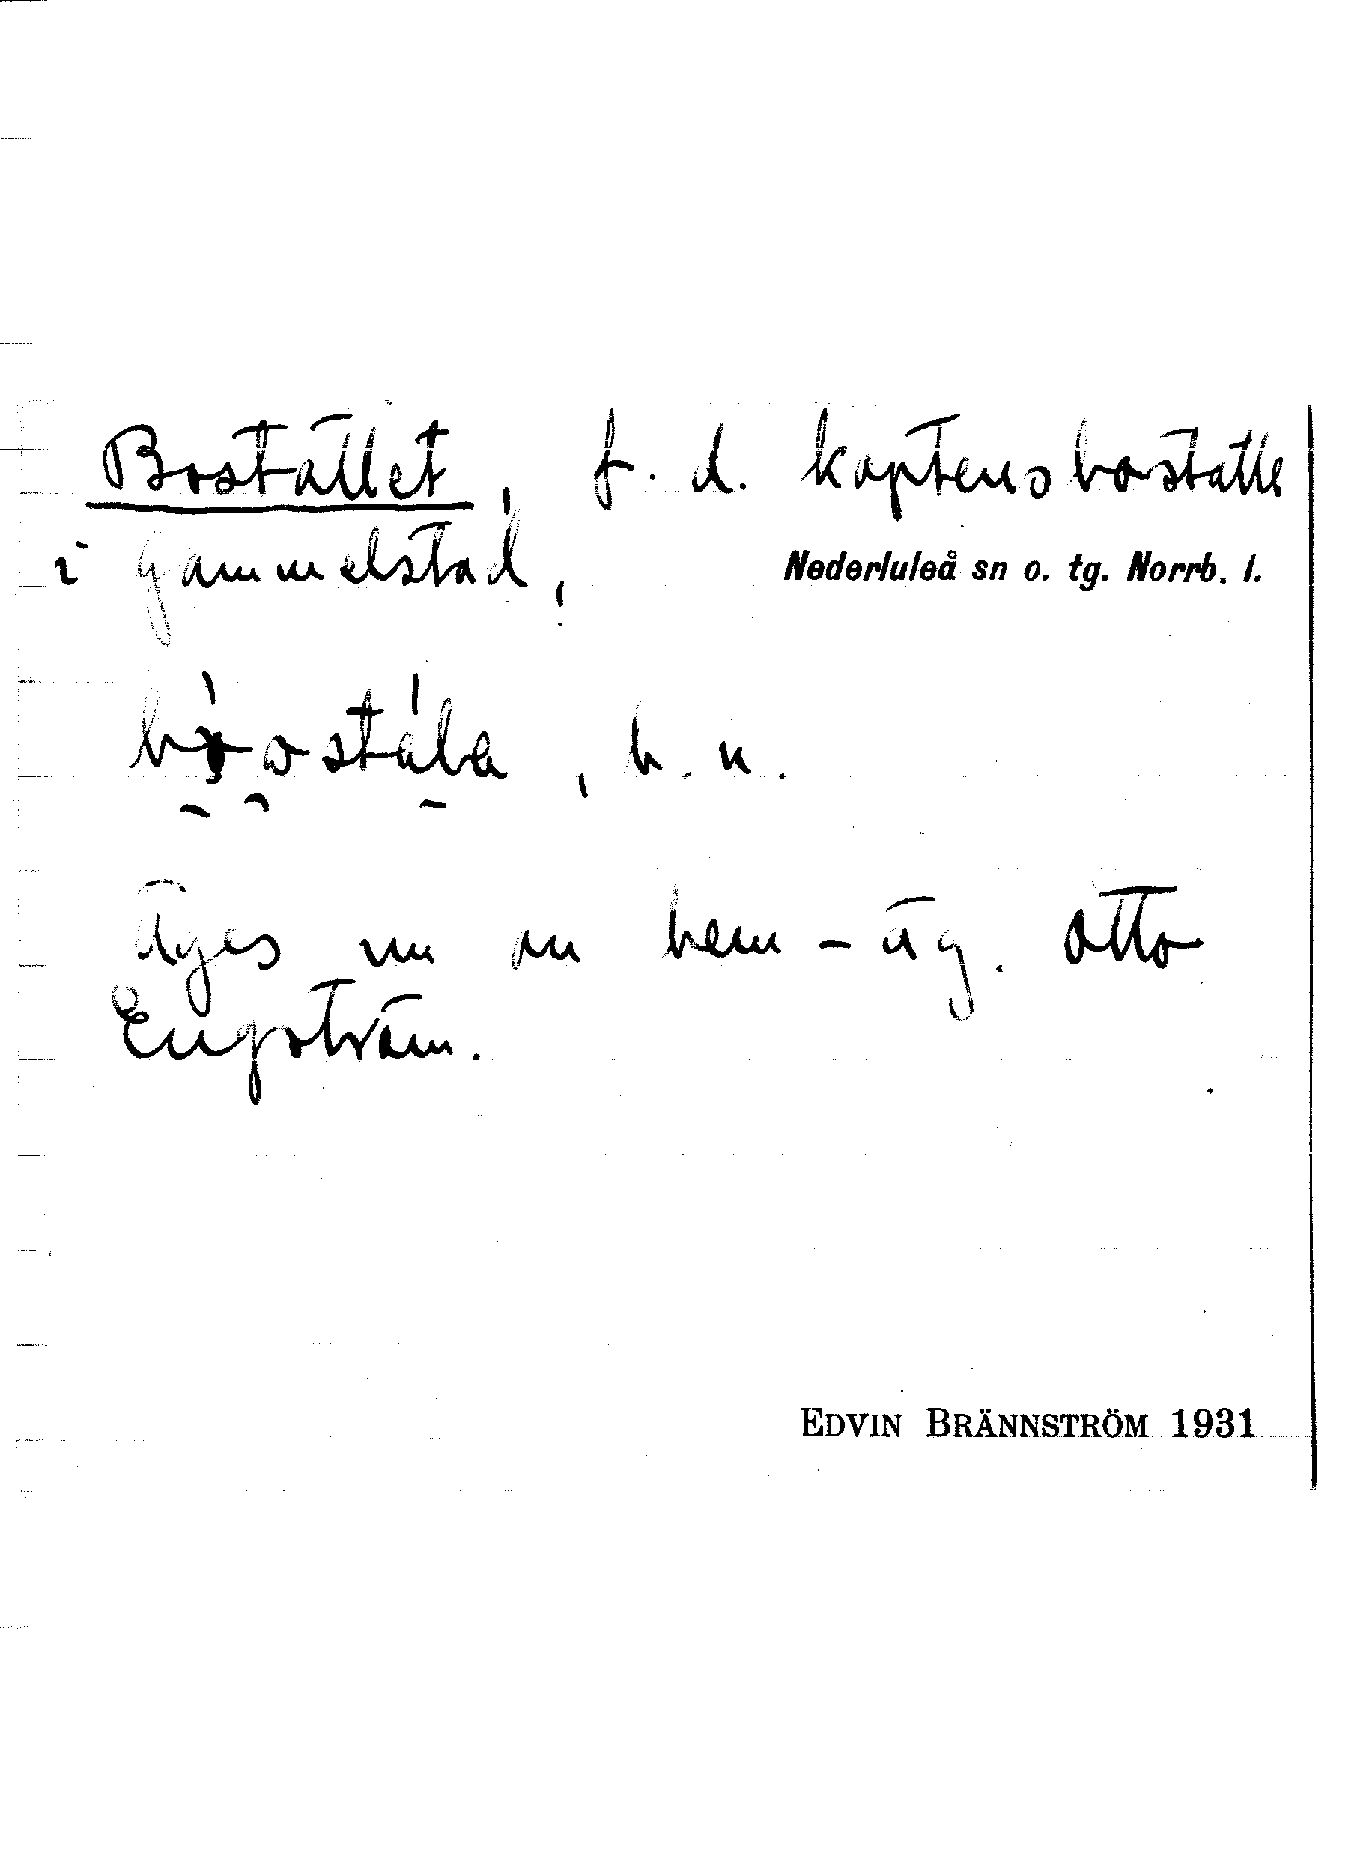 Bostället, f. d. kaptensboställe
i Gammelstad,
Nederluleå sn o. tg. Norrb. l.
, b. n.
Äges nu av hem-äg. Otto
Engström.
EDVIN BRÄNNSTRÖM 1931